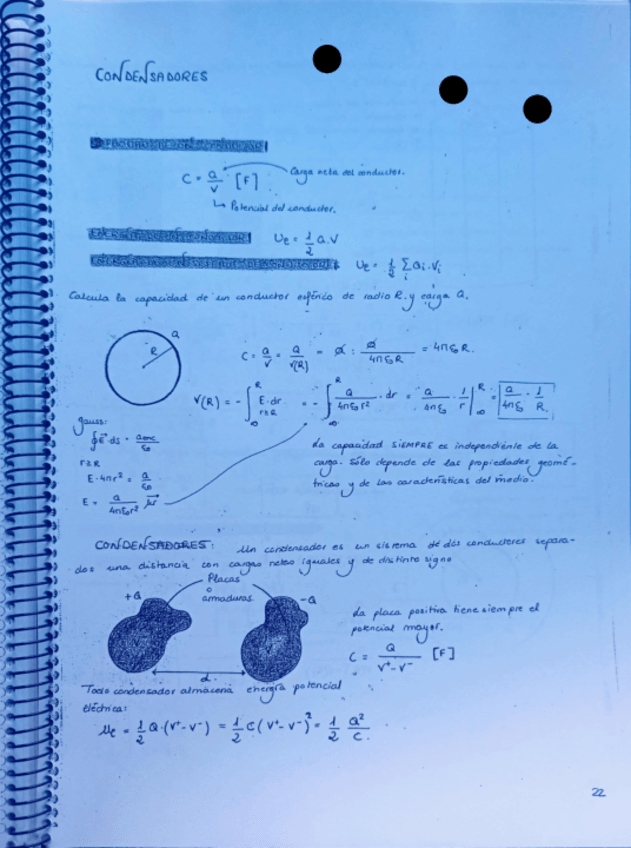 CONDENSADORES
C = Q/V [F] Carga neta del conductor.
↳ Potencial del conductor.
Ue = 1/2 Q.V
Ue = 1/2 ∑i Qi.Vi
Calcula la capacidad de un conductor esférico de radio R. y carga Q.
Q
R
C = Q/V = Q/V(R) = Q : Q/4πε0R = 4πε0R.
V(R) = - ∫∞^R E.dr r≥R = - ∫∞^R Q/4πε0r² . dr = Q/4πε0 . 1/r |∞^R = Q/4πε0 . 1/R.
gauss:
∮E ds = Qenc/ε0
r≥R
E.4πr² = Q/ε0
E = Q/4πε0r²
La capacidad SIEMPRE es independiente de la
carga. Sólo depende de las propiedades geomé-
tricas y de las características del medio.
CONDENSADORES: Un condensador es un sistema de dos conductores separa-
dos una distancia con cargas netas iguales y de distinto signo
Placas
o
armaduras.
+Q
-Q
d.
La placa positiva tiene siempre el
potencial mayor.
C = Q/V⁺-V⁻ [F]
Todo condensador almacena energía potencial
eléctrica:
Ue = 1/2 Q.(V⁺-V⁻) = 1/2 C(V⁺-V⁻)² = 1/2 Q²/C.
22